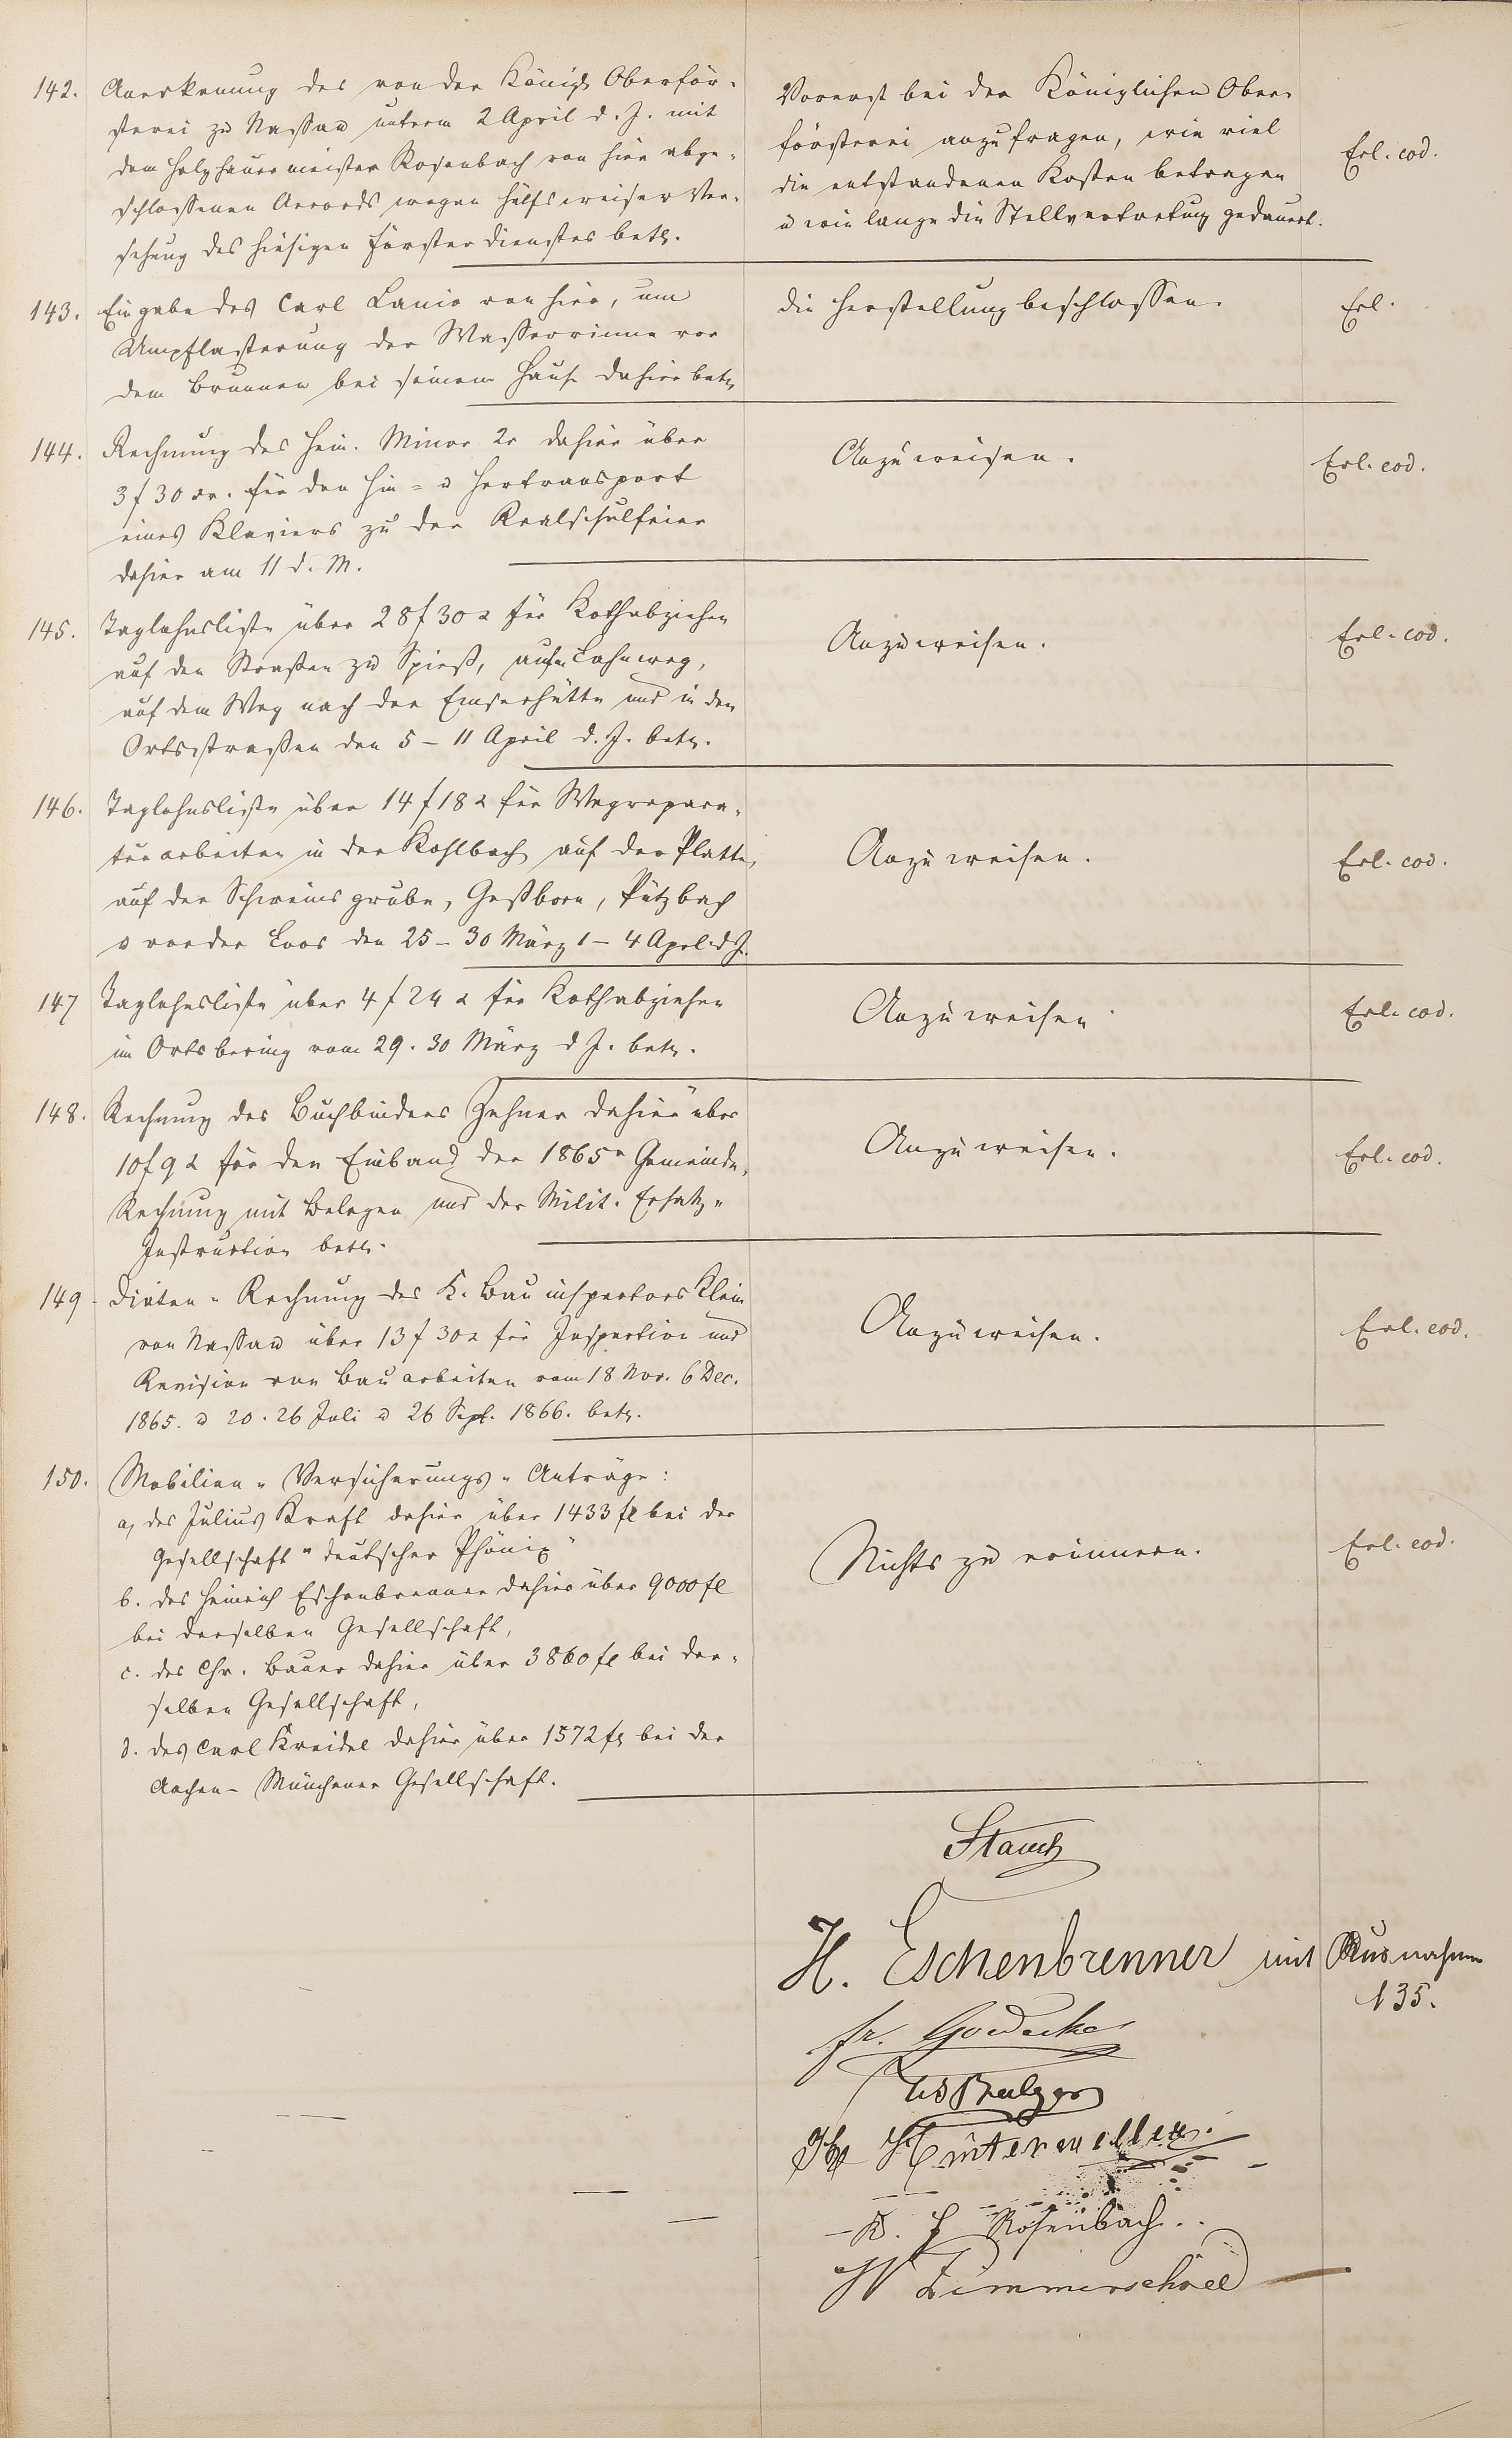 142. Anerkennung des von der Königl. Oberför-
sterei zu Nassau unterm 2 April d. J. mit
dem Holzhauermeister Rosenbach von hier abge-
schlossenen Accords wegen hülfsweiser Ver-
sehung des hiesigen Försterdienstes betr.
Vorerst bei der Königlichen Ober-
försterei anzufragen, wie viel
die entstandenen Kosten betragen
u wie lange die Stellvertretung gedauert.
Erl. eod.
143. Eingabe des Carl Lanio von hier, um
Umpflasterung der Wasserrinne vor
dem Brunnen bei seinem Hause dahier betr.
die Herstellung beschlossen.
Erl.
144. Rechnung des Hein. Minor 2r dahier über
3 f 30 xr. für den Hin- u Hertransport
eines Klaviers zu der Realschulfeier
dahier am 11 d. M.
Anzuweisen.
Erl. eod.
145. Taglohnsliste über 28 f 30 x für Kothabziehen
auf den Strassen zu Spieß, auf'm Lahnweg,
auf dem Weg nach der Emserhütte und in den
Ortsstraßen den 5 – 11 April d. J. betr.
Anzuweisen.
Erl. eod.
146. Taglohnsliste über 14 f 18 x für Wegrepara-
turarbeiten in der Kohlbach auf der Platte,
auf der Schweinsgrube, Geßborn, Pützbach
u vor der Loos den 25 – 30 März 1 – 4 April d J.
Anzuweisen.
Erl. eod.
147 Taglohnsliste über 4 f 24 x für Kothabziehen
im Ortsbering vom 29. 30 März d J. betr.
Anzuweisen
Erl. eod.
148. Rechnung des Buchbinders Zehner dahier über
10 f 9 x für den Einband der 1865r Gemeinde-
Rechnung mit Belegen und der Milit. Ersatz-
Instruction betr.
Anzuweisen.
Erl. eod.
149. Diäten-Rechnung des K. Bauinspectors Klein
von Nassau über 13 f 30 x für Inspection und
Revision von Bauarbeiten vom 18 Nov. 6 Dec.
1865. u 20. 26 Juli u 26 Sept. 1866. betr.
Anzuweisen.
Erl. eod.
150. Mobilien-Versicherungs-Anträge:
a, des Julius Kraft dahier über 1433 fl bei der
Gesellschaft "deutscher Phönix"
b. des Heinrich Eschenbrenner dahier über 9000 fl
bei derselben Gesellschaft,
c. des Chr. Bauer dahier über 3860 fl bei der-
selben Gesellschaft,
d. des Carl Kreidel dahier über 1572 fl bei der
Aachen-Münchener Gesellschaft.
Nichts zu erinnern.
Erl. eod.
Stauch
H. Eschenbrenner mit Ausnahme
135.
fr. Goedecke
Balzer
Hintermeller
K. H Rosenbach.
W Zimmerschied